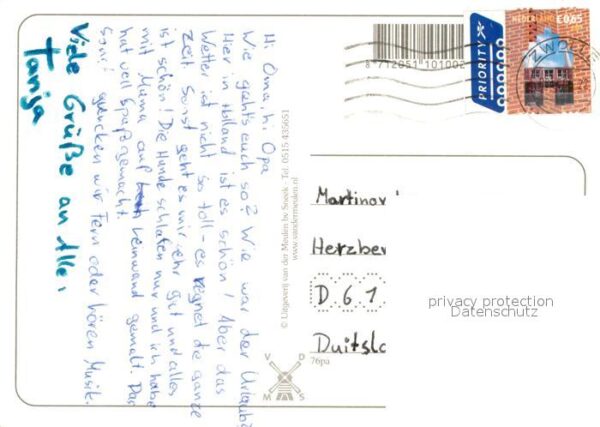 Hi Oma, hi Opa
Wie geht's euch so? Wie war der Urlaub?
Hier in Holland ist es schön! Aber das
Wetter ist nicht so toll - es regnet die ganze
Zeit. Sonst geht es mir sehr gut und alles
ist schön! Die Hunde schlafen nur und ich habe
mit Mama auf Leinwand gemalt. Das
hat voll Spaß gemacht.
Sonst gucken wir Fern oder hören Musik.
Viele Grüße an Alle,
Tanja
© Uitgeverij van der Meulen bv Sneek - Tel. 0515 435651
www.vandermeulen.nl
8 712051 101002
PRIORITY
NEDERLAND €0,65
ZWOLLE
Martinov
Herzber
D 6 1
Duitsla
76pa
V D
M S
privacy protection
Datenschutz